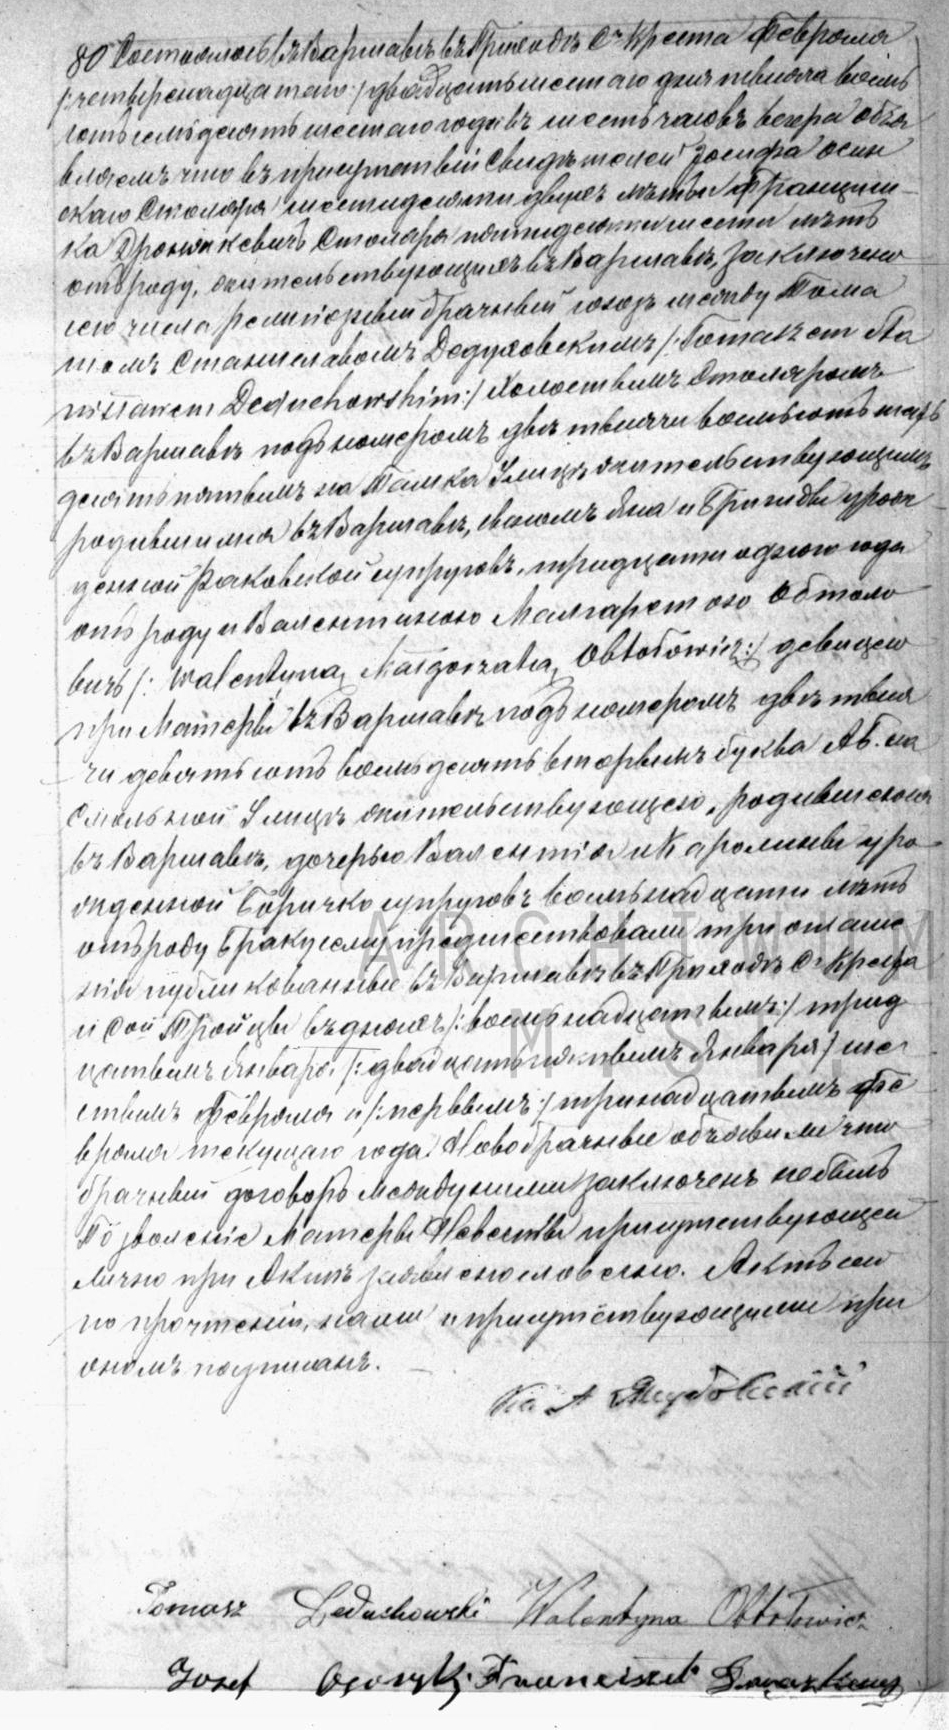 80 Состоялось въ Варшавѣ въ Приходѣ Сᵍ Креста Февраля
/:четырнадцатаго:/ двадцать шестаго дня тысяча восемь
сотъ семьдесятъ шестаго года въ шесть часовъ вечера Объя
вляемъ что въ присутствіи Свидѣтелей Іосифа
скаго Столяра шестидесяти двухъ лѣтъ и Франциш
ка Столяра пятидесяти шести лѣтъ
отъ роду, жительствующихъ въ Варшавѣ, заключено
сего числа религіозный брачный союзъ между Тома
шомъ Станиславомъ Дедуховскимъ /:Tomaszem Sta
nisławem Deduchowskim:/ Холостымъ Столяромъ
въ Варшавѣ подъ номеромъ двѣ тысячи восемьсотъ
десять пятымъ на Тамка Улицѣ жительствующимъ
родившимся въ Варшавѣ, сыномъ Яна и Бригиды урож
денной Раковской супруговъ, тридцати одного года
отъ роду и Валентиною Малгаржатою Обтоло
вичъ /: Walentyna Małgorzata Obtołowicz:/ девицею
при Матери въ Варшавѣ подъ номеромъ двѣ тыся
чи девятьсотъ восемьдесятъ вторымъ буква АБ. на
Смольной Улицѣ жительствующею, родившеюся
въ Варшавѣ, дочерью Валентія и Каролины уро
жденной супруговъ восемнадцати лѣтъ
отъ роду Браку сему предшествовали три оглаше
нія публикованные въ Варшавѣ въ Приходѣ Сᵍ Креста
и Сой Тройцы въ дняхъ /:восемнадцатымъ:/ трид
цатымъ Января /:двадцать пятымъ Января:/ ше
стымъ Февраля и /:первымъ:/ тринадцатымъ Фе
враля текущаго года. Новобрачные объявили что
брачный договоръ между ними заключенъ не былъ
Позволеніе Матери Невесты присутствующей
лично при Актѣ словесно. Актъ сей
по прочтеніи, нами и присутствующими при
ономъ подписанъ. —
Tomasz Deduchowski Walentyna Obtołowicz
Józef Franciszek
ARCHIWUM